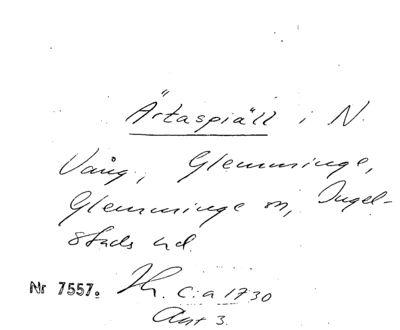 Ärtaspiäll i N.
Vång, Glemminge,
Glemminge sn, Ingel-
stads hd.
Nr 7557. Th. c:a 1730
Ant 3.